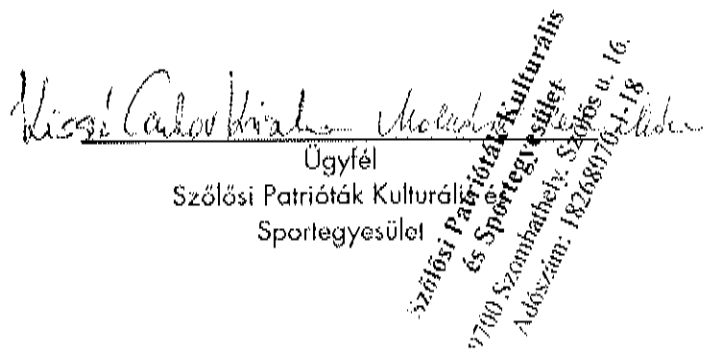 Ügyfél
Szőlősi Patrióták Kulturális és
Sportegyesület
Szőlősi Patrióták Kulturális
és Sportegyesület
9700 Szombathely, Szőlős u. 16.
Adószám: 18268070-1-18